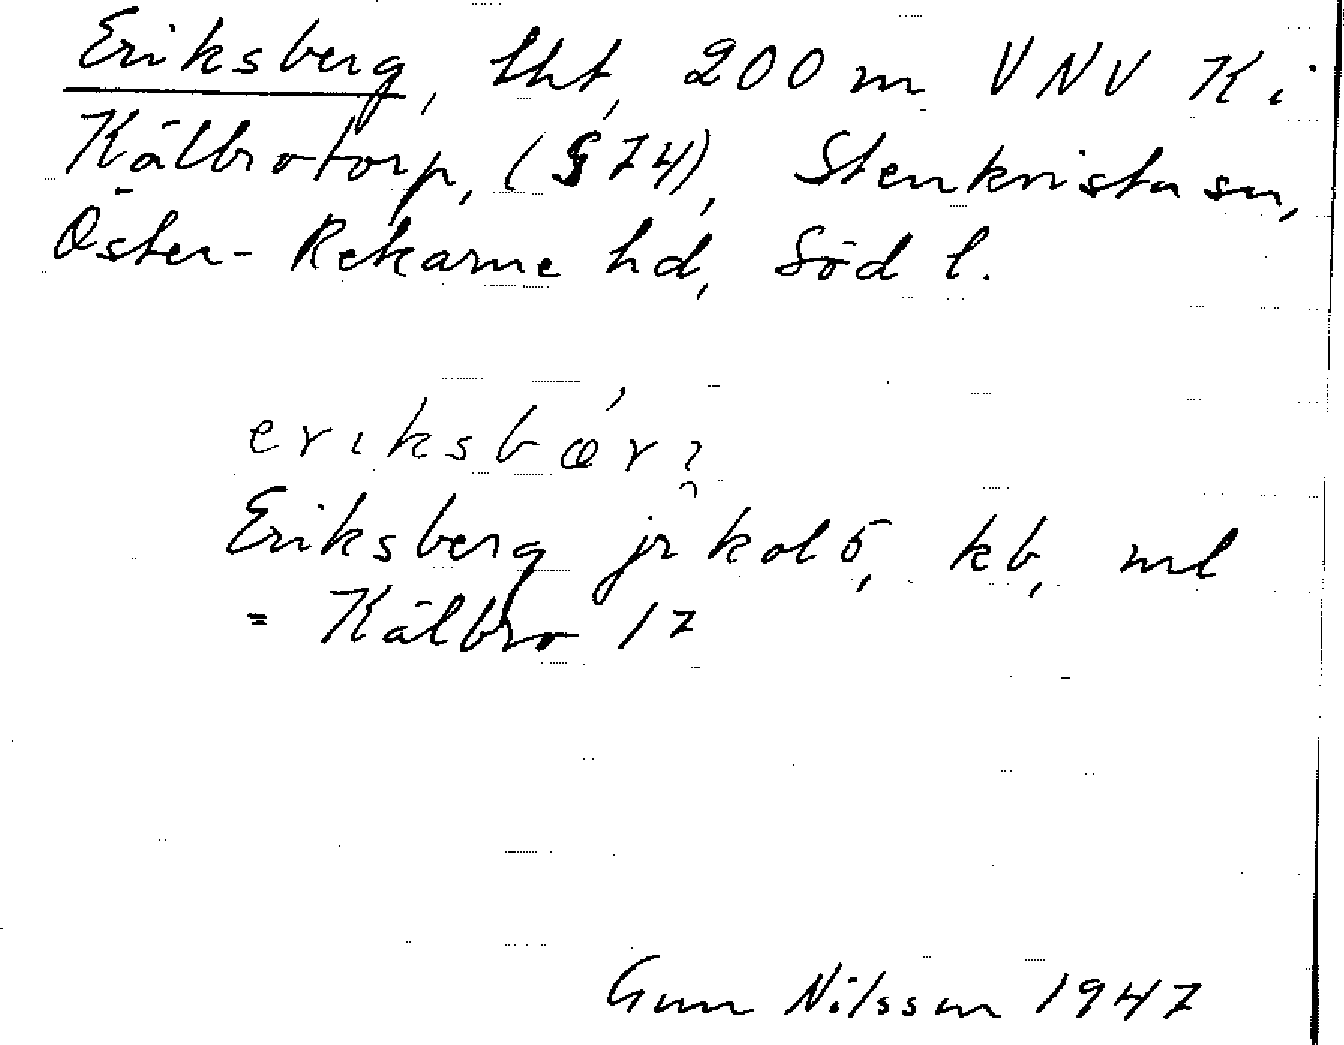 Eriksberg, lht, 200 m VNV K i
Kälbrotorp, (§ 74), Stenkvista sn,
Öster-Rekarne hd, Söd l.
eriksbær
Eriksberg jr kol 5, kb, ml
= Kälbro 17
Gun Nilsson 1947